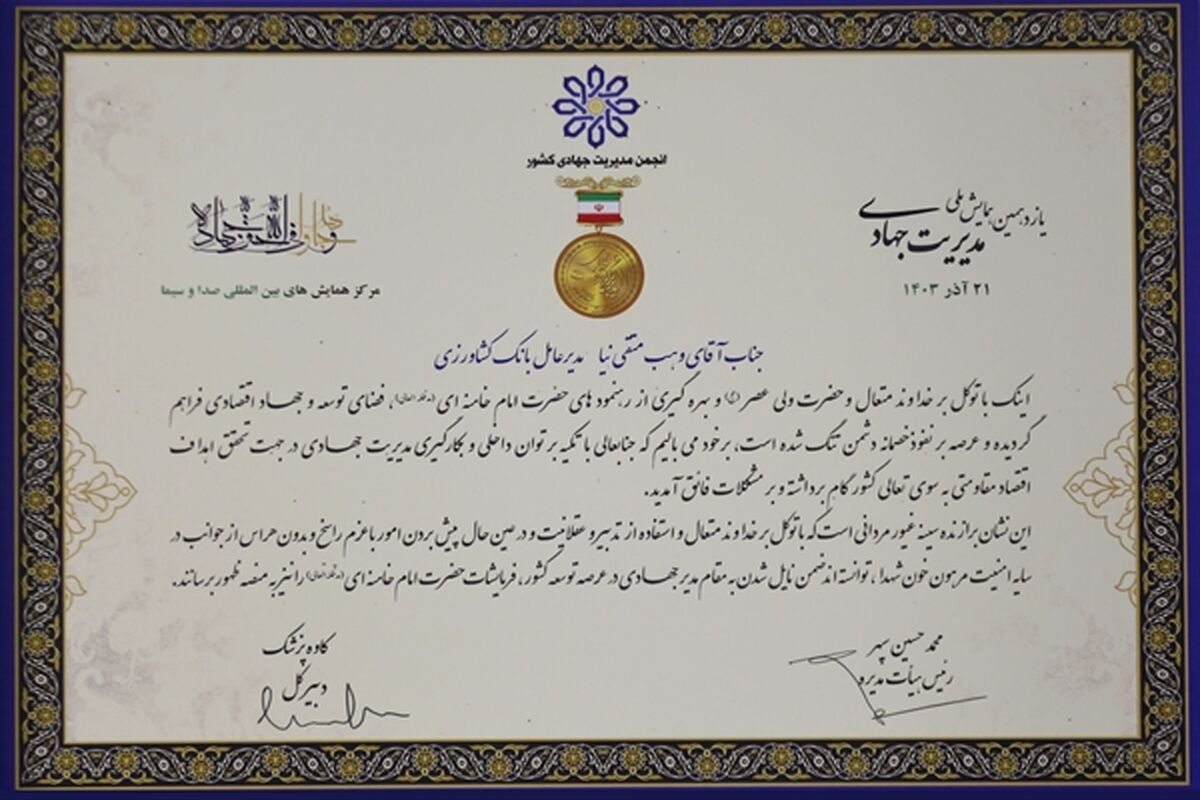 انجمن مدیریت جهادی کشور
یازدهمین همایش ملی
مدیریت جهادی
۲۱ آذر ۱۴۰۳
وجاهدوا فی الله حق جهاده
مرکز همایش های بین المللی صدا و سیما
جناب آقای وهب متقی نیا مدیرعامل بانک کشاورزی
اینک با توکل بر خداوند متعال و حضرت ولی عصر (عج) و بهره گیری از رهنمود های حضرت امام خامنه ای (مدظله العالی)، فضای توسعه و جهاد اقتصادی فراهم
گردیده و عرصه بر نفوذ خصمانه دشمن تنگ شده است، برخود می بالیم که جنابعالی با تکیه بر توان داخلی و بکارگیری مدیریت جهادی در جهت تحقق اهداف
اقتصاد مقاومتی به سوی تعالی کشور گام برداشته و بر مشکلات فائق آمدید.
این نشان برازنده سینه غیور مردانی است که با توکل بر خداوند متعال و استفاده از تدبیر و عقلانیت و در عین حال پیش بردن امور با عزم راسخ و بدون هراس از جوانب در
سایه امنیت مرهون خون شهدا، توانسته اند ضمن نایل شدن به مقام مدیر جهادی در عرصه توسعه کشور، فرمایشات حضرت امام خامنه ای (مدظله العالی) را نیز به منصه ظهور برسانند.
محمد حسین سپهر
رئیس هیأت مدیره
کاوه پزشک
دبیر کل